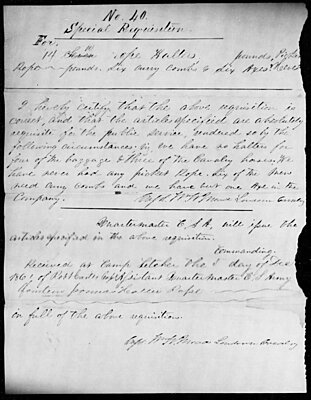 No. 40.
Special Requisition.
For
14 Rope Halters, pounds, Picket
Rope — pounds. Six curry Combs & Six Axes
I hereby certify that the above requisition is
correct, and that the articles specified are absolutely
requisite for the public service, rendered so by the
following circumstances: we have no halters for
four of the baggage & three of the Cavalry horses. We
have never had any picket Rope. Six of the men
need curry combs and we have but one Axe in the
Company. Capt. Wm. W. Mead Loudoun Cavalry
Quartermaster C. S. A., will issue the
articles specified in the above requisition.
Commanding.
Received at Camp the day of Dec
186 of Assistant Quartermaster C. S. Army
pounds Rope
in full of the above requisition.
Capt Wm W. Mead Loudoun Cavalry